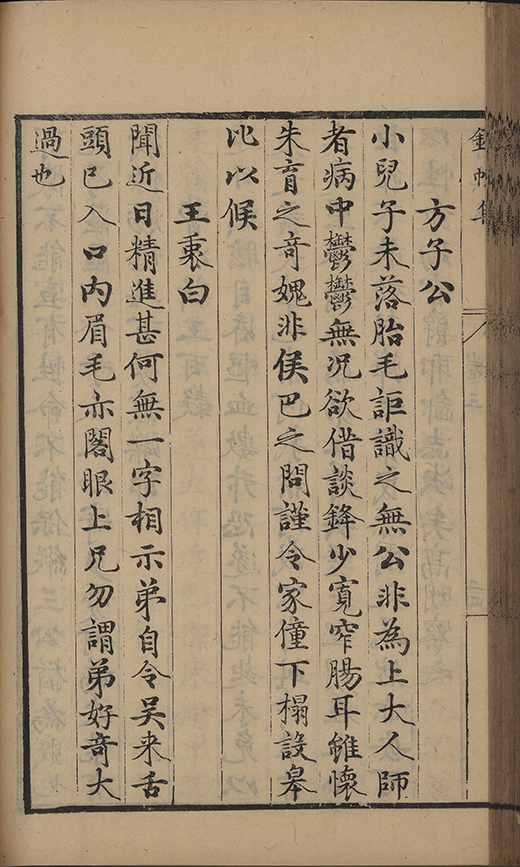 方子公
小兒子未落胎毛詎識之無公非為上大人師
者病中鬱鬱無况欲借談鋒少寬窄腸耳雖懷
朱育之奇媿非侯巴之問謹令家僮下榻設皋
比以候
王衷白
聞近日精進甚何無一字相示弟自令吴来舌
頭已入口内眉毛亦閣眼上兄勿謂弟好奇大
過也